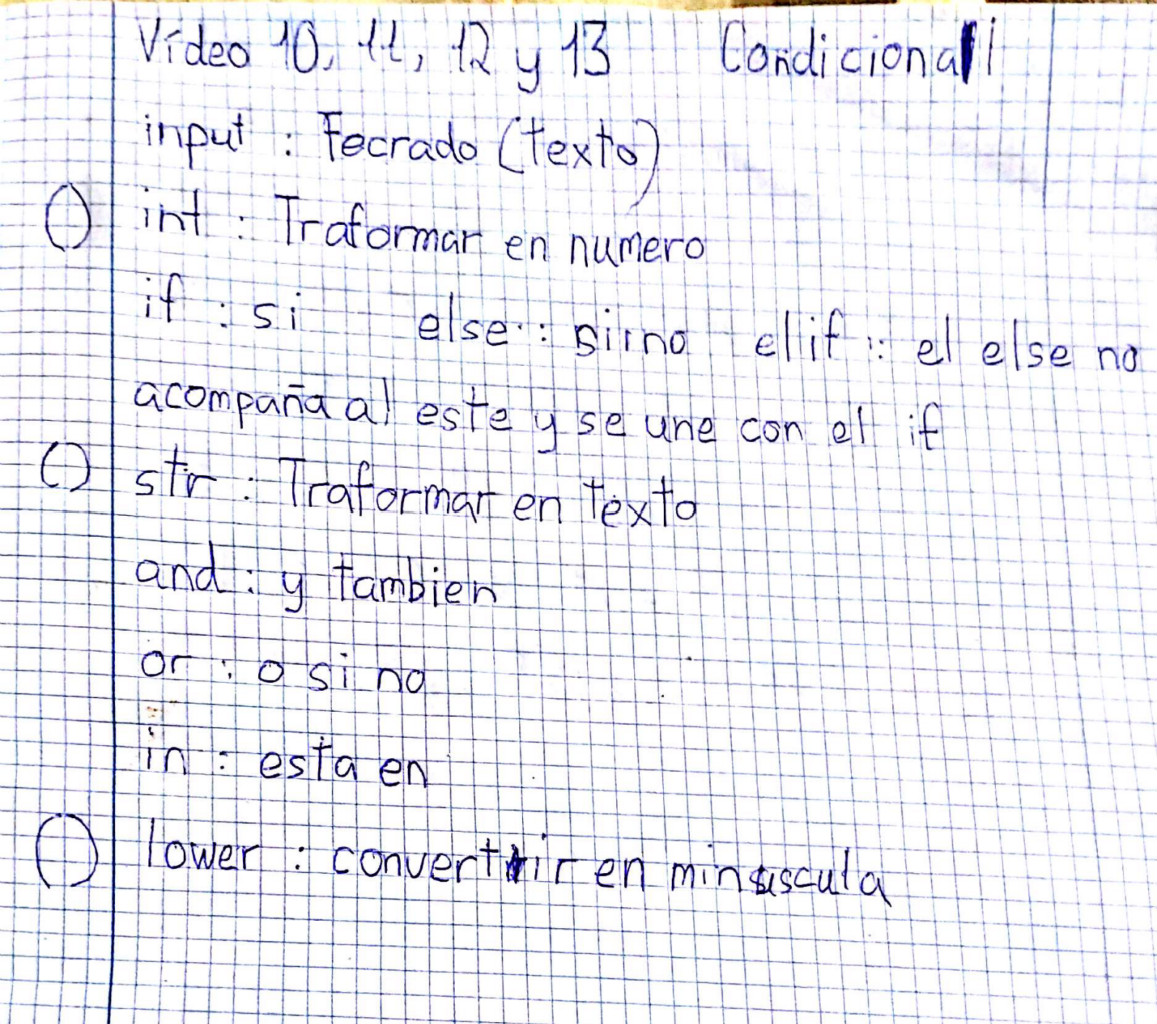 Vídeo 10, 11, 12 y 13 Condicional
input : Tecrado (texto)
() int : Traformar en numero
if : si else : siino elif : el else no
acompaña al este y se une con el if
() str : Traformar en texto
and : y tambien
or : o si no
in : esta en
() lower : convertir en minuscula